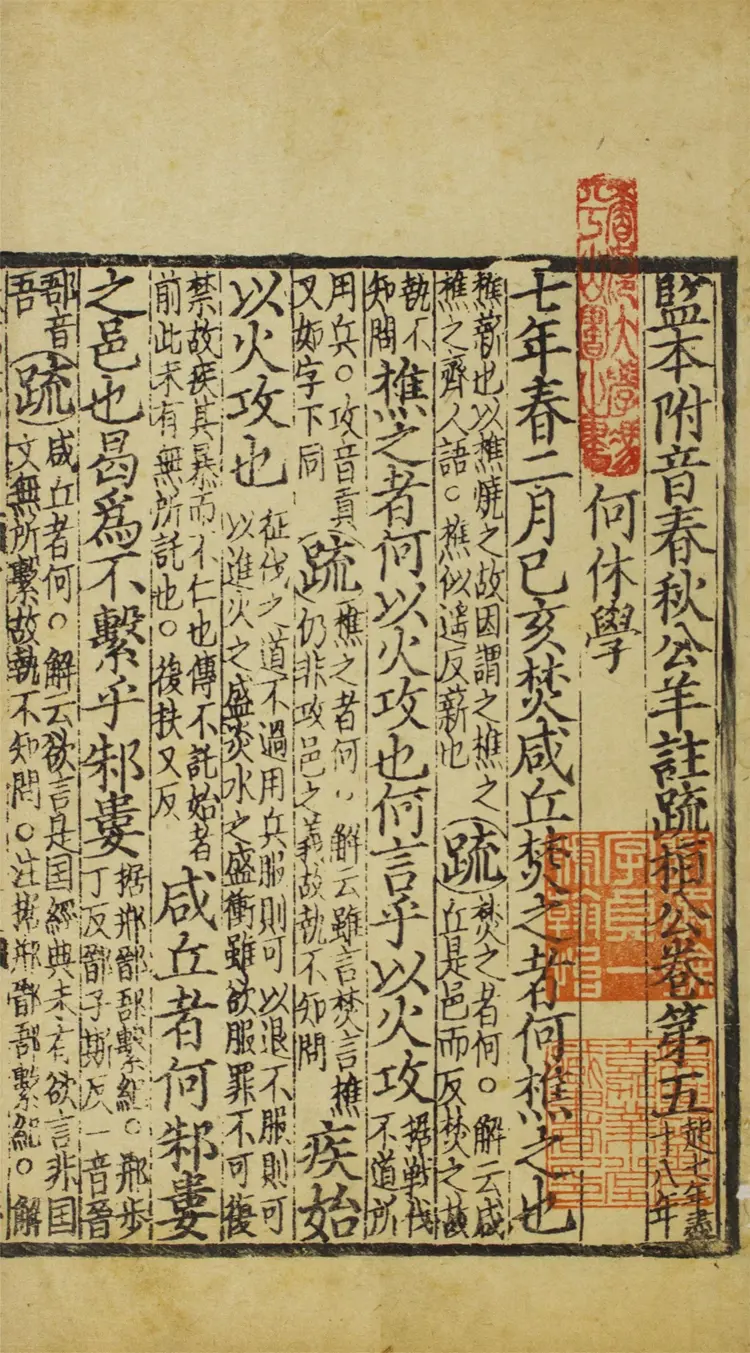 監本附音春秋公羊註疏桓公卷第五
起七年盡
十八年
何休學
七年春二月己亥焚咸丘焚之者何樵之也
樵薪也以樵燒之故因謂之樵之
樵之齊人語。樵似遙反薪也
疏
焚之者何。解云咸
丘是邑而反焚之故
執不
知問
樵之者何以火攻也何言乎以火攻
据戰伐
不道所
用兵。攻音貢
又如字下同
疏
樵之者何。解云雖言焚言樵
仍非攻邑之義故執不知問
疾始
以火攻也
征伐之道不過用兵服則可以退不服則可
以進火之盛炎水之盛衝雖欲服罪不可復
禁故疾其暴而不仁也傳不託始者
前此未有無所託也。復扶又反
咸丘者何邾婁
之邑也曷爲不繫乎邾婁
据邢鄑郚繫紀。邢步
丁反鄑子斯反一音晉
郚音
吾
疏
咸丘者何。解云欲言是国經典未有欲言非国
文無所繫故執不知問。注据邢鄑郚繫紀。解